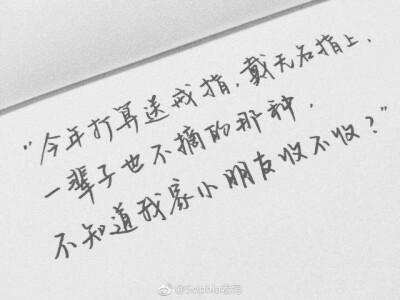 “今年打算送戒指，戴无名指上、
一辈子也不摘的那种，
不知道我家小朋友收不收？”